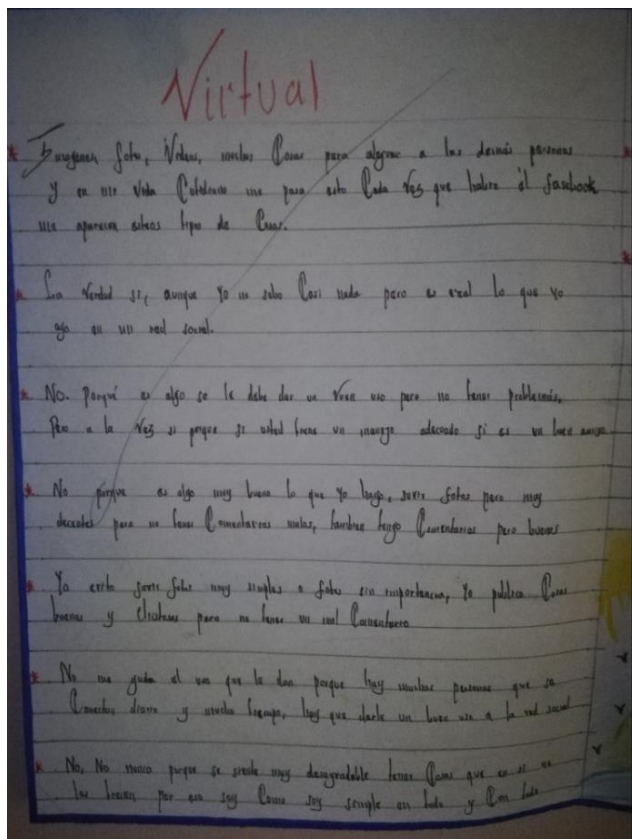 Virtual
Imagenes fotos, Videos, muchas Cosas para alegrar a las demás personas
y en mi Vida Cotidiana me pasa esto Cada Vez que habro él facebook
me aparecen estos tipo de Cosas.
La Verdad si, aunque Yo no subo Casi nada pero es real lo que yo
ago en mi red social.
No. Porqué es algo se le debe dar un Vuen uso para no tener problemas,
Pero a la Vez si porque si usted tiene un manejo adecuado si es un buen amigo
No porque es algo muy bueno lo que Yo hago, suvir fotos pero muy
decentes para no tener Comentarios malos, tambien tengo Comentarios pero buenos
Yo evito suvir fotos muy simples o fotos sin importancia, Yo publico Cosas
buenas y para no tener un mal Comentario
No me gusta el uso que le dan porque hay muchas personas que se
Conectan diario y mucho tiempo, hay que darle un buen uso a la red social
No, No nunca porque se siente muy desagradable tener Cosas que en si no
las por eso soy Como soy simple en todo y Con todo